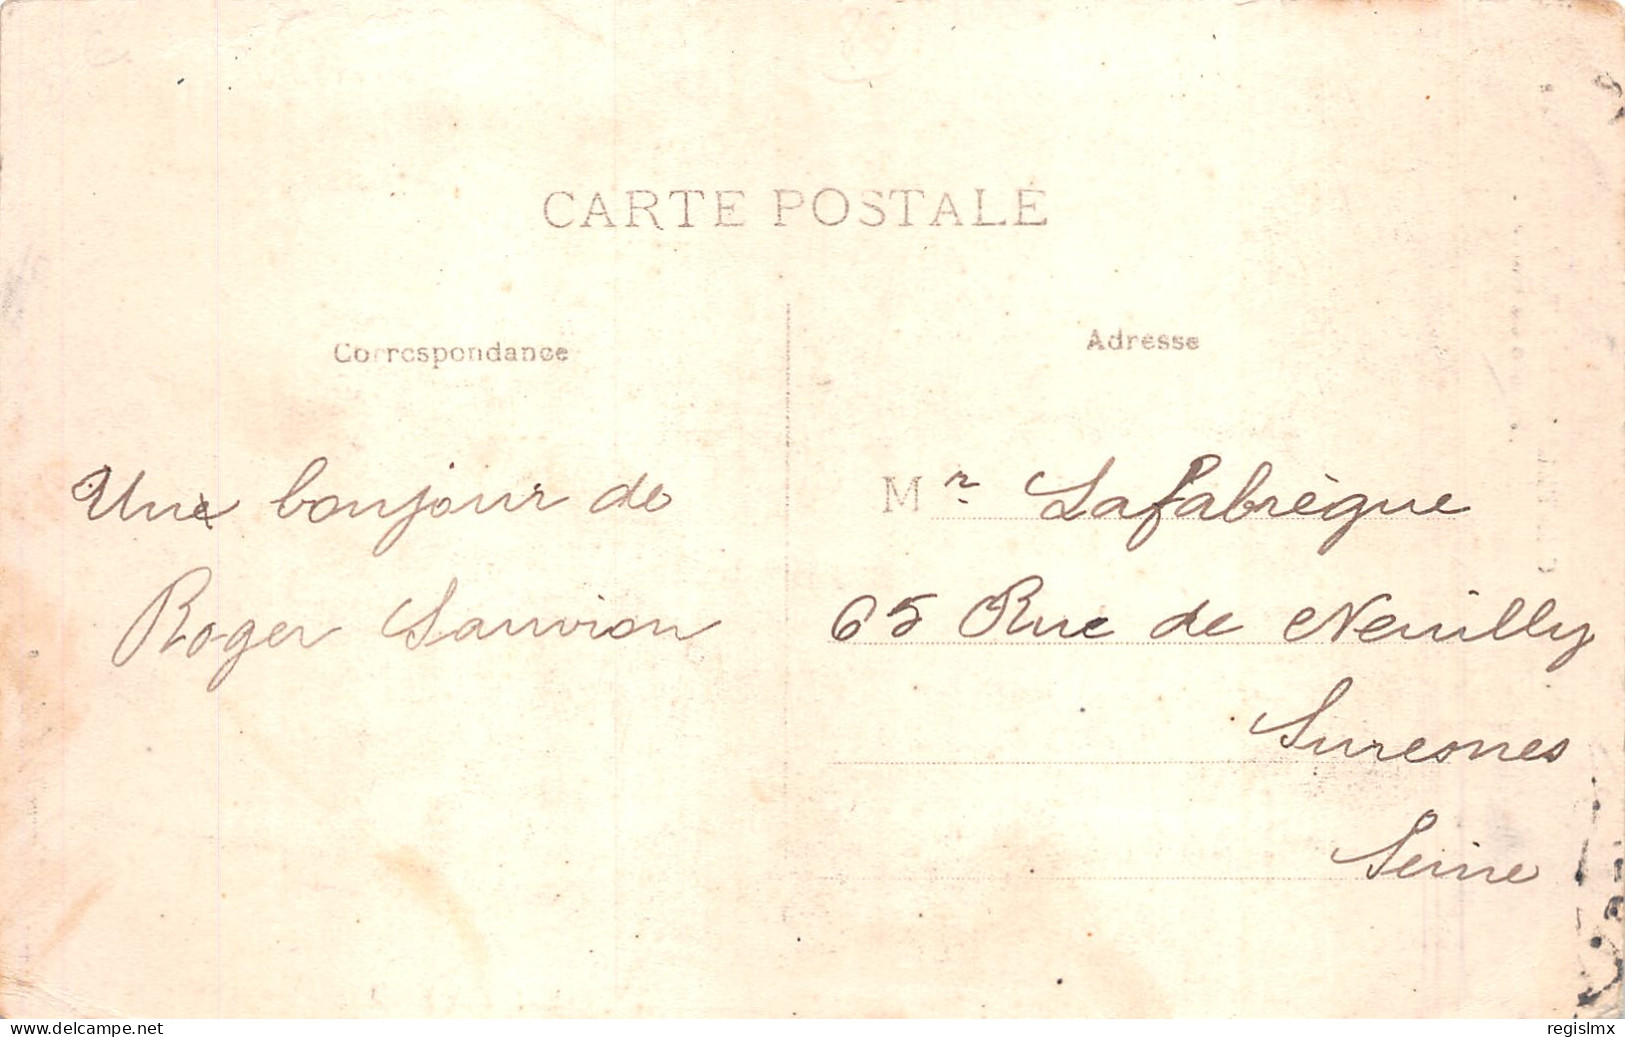 CARTE POSTALE
Correspondance
Une bonjour de
Roger Sauvion
Adresse
Mr Lafabrègue
65 Rue de Neuilly
Suresnes
Seine
www.delcampe.net
regislmx